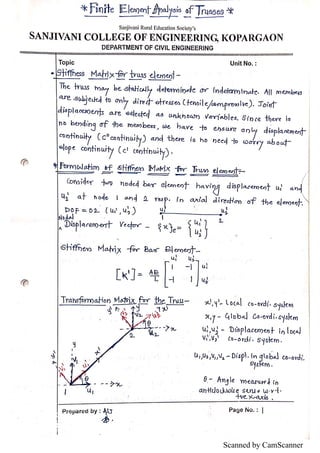 *Finite Element Analysis of Trusses*
Sanjivani Rural Education Society's
SANJIVANI COLLEGE OF ENGINEERING, KOPARGAON
DEPARTMENT OF CIVIL ENGINEERING
Topic Unit No. :
• Stiffness Matrix for truss element -
The truss may be statically determinate or indeterminate. All members
are subjected to only direct stresses (tensile/compressive). Joint
displacements are selected as unknown variables. Since there is
no bending of the members, we have to ensure only displacement
continuity (C° continuity) and there is no need to worry about
slope continuity (C' continuity).
* Formulation of Stiffness Matrix for Truss element -
Consider two noded bar element having displacement u₁' and
u₂' at node 1 and 2 resp. in axial direction of the element.
DOF = 02 (u₁', u₂') u₁' u₂'
Nodal 1 2
Displacement Vector - {x}e = {u₁' u₂'}
Stiffness Matrix for Bar Element -
u₁' u₂'
[k'] = AE/L [1 -1 -1 1] u₁' u₂'
Transformation Matrix for the Truss -
x', y' - Local co-ordi. system
x, y - Global co-ordi. system
u₁', u₂' - Displacement in local
v₁', v₂' co-ordi. system.
u₁, u₂, v₁, v₂ - Displ. in global co-ordi.
system.
θ - Angle measured in
anticlockwise sense w.r.t.
+ve x-axis.
Prepared by : Page No. : 1
Scanned by CamScanner